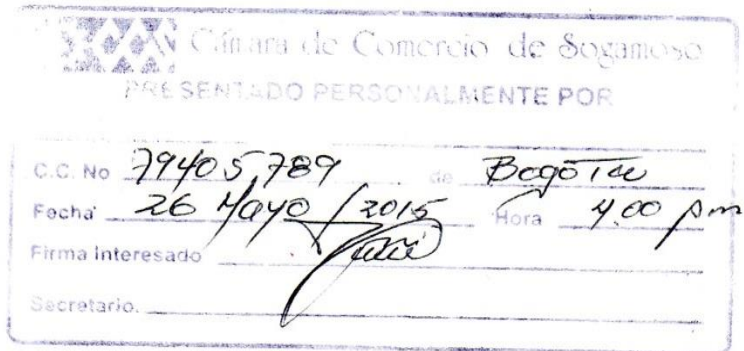 Cámara de Comercio de Sogamoso
PRESENTADO PERSONALMENTE POR
C.C. No 79405789 de Bogotá
Fecha 26 Mayo / 2015 Hora 4.00 pm
Firma Interesado
Secretario.